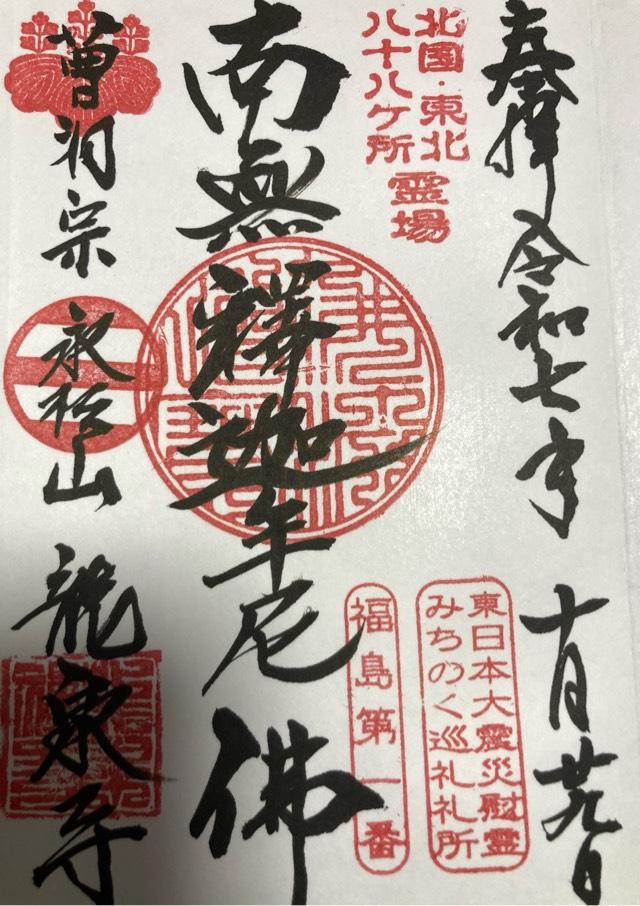 奉拝 令和七年 十月廿九日
北国・東北
八十八ケ所
霊場
東日本大震災慰霊
みちのく巡礼札所
福島第一番
南無釋迦牟尼佛
曹洞宗 永松山 龍泉寺